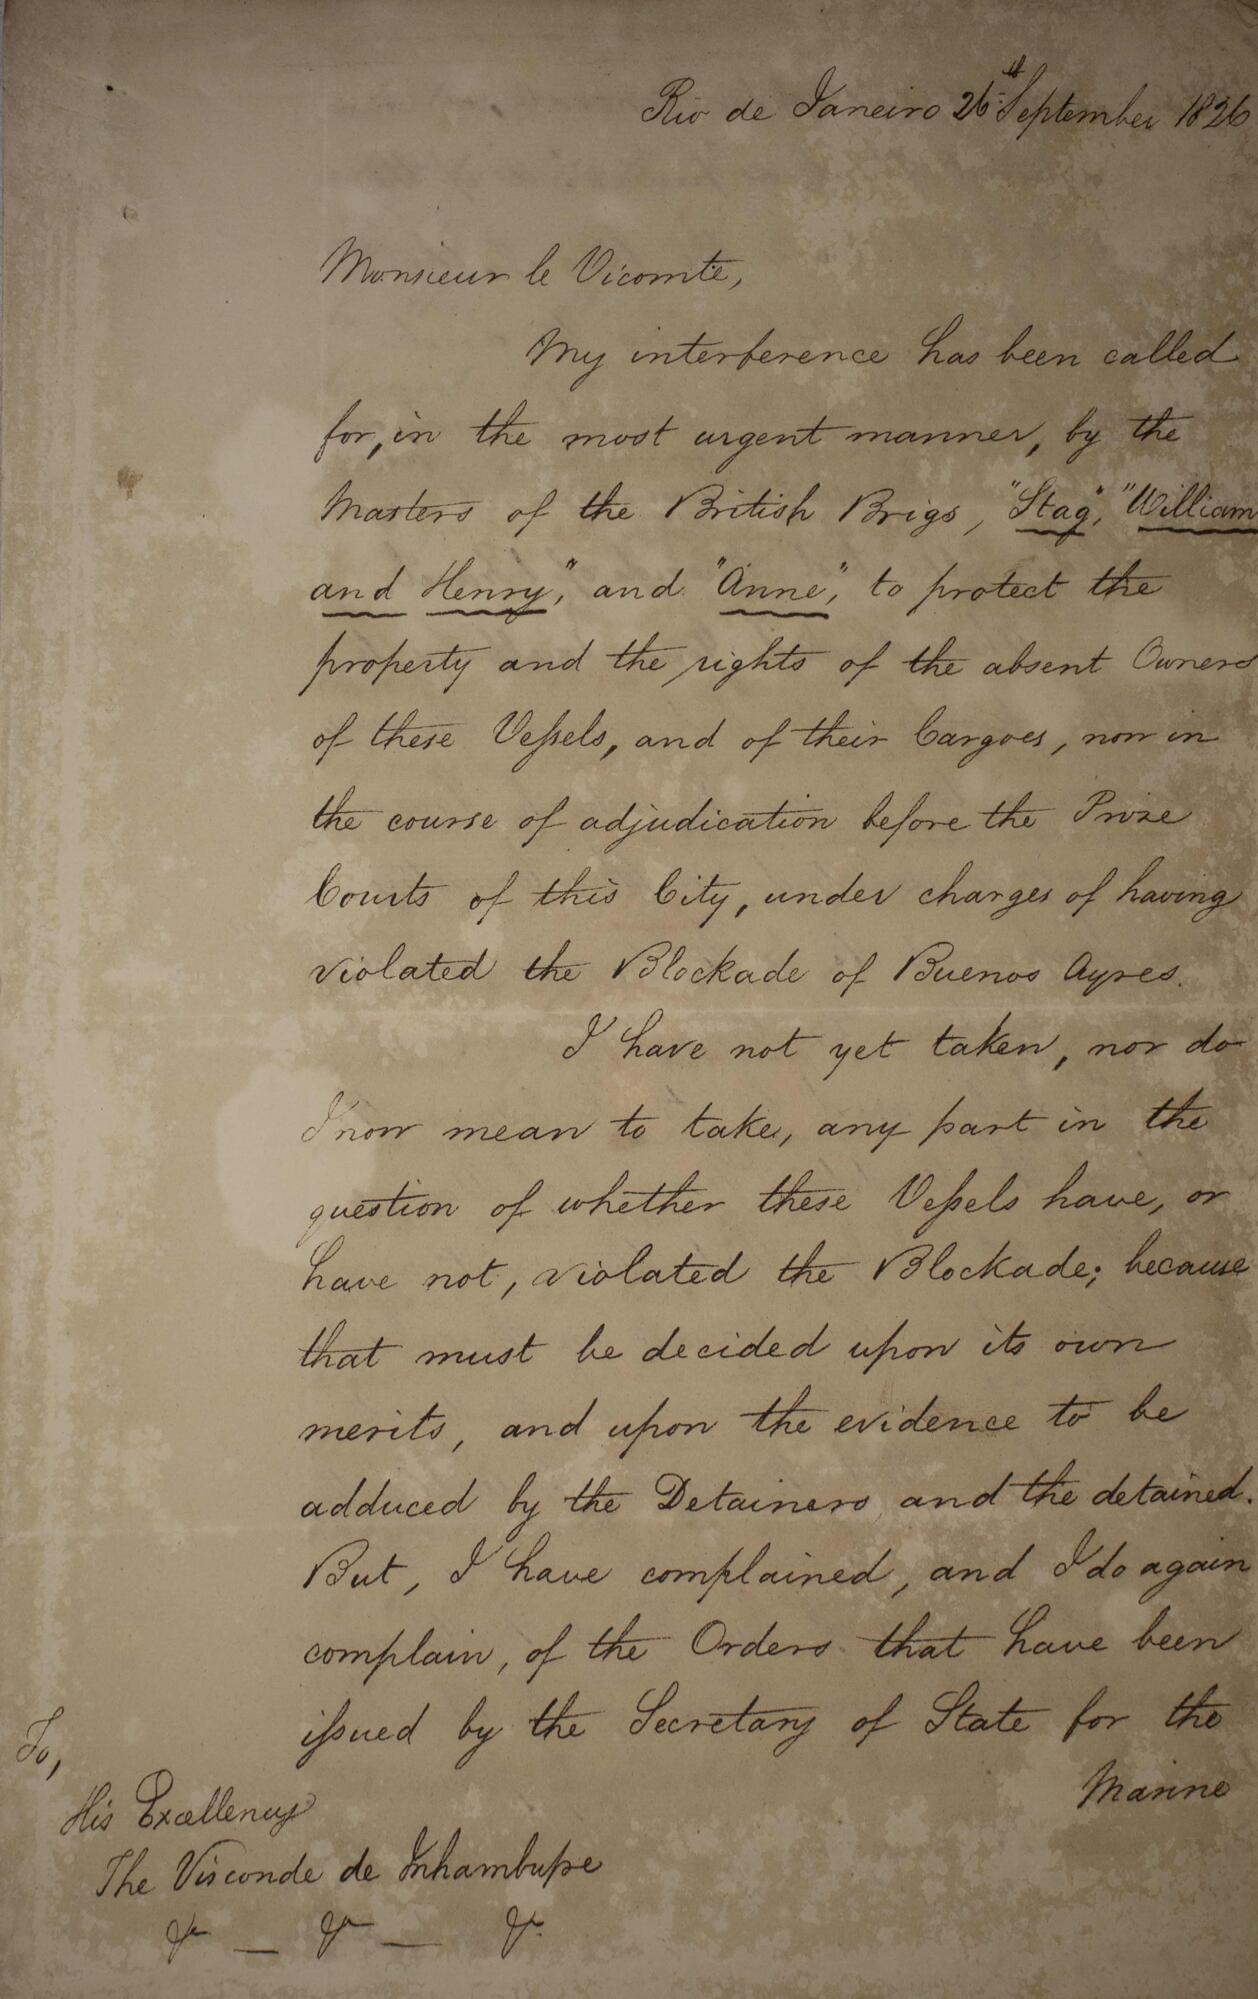 Rio de Janeiro 26th September 1826
Monsieur le Vicomte,
My interference has been called
for, in the most urgent manner, by the
Masters of the British Brigs, "Stag", "William
and Henry", and "Anne", to protect the
property and the rights of the absent Owners
of these Vessels, and of their Cargoes, now in
the course of adjudication before the Prize
Courts of this City, under charges of having
violated the Blockade of Buenos Ayres.
I have not yet taken, nor do
I now mean to take, any part in the
question of whether these Vessels have, or
have not, violated the Blockade; because
that must be decided upon its own
merits, and upon the evidence to be
adduced by the Detainers and the detained.
But, I have complained, and I do again
complain, of the Orders that have been
issued by the Secretary of State for the
Marine
To,
His Excellency
The Visconde de Inhambupe
&c — &c — &c